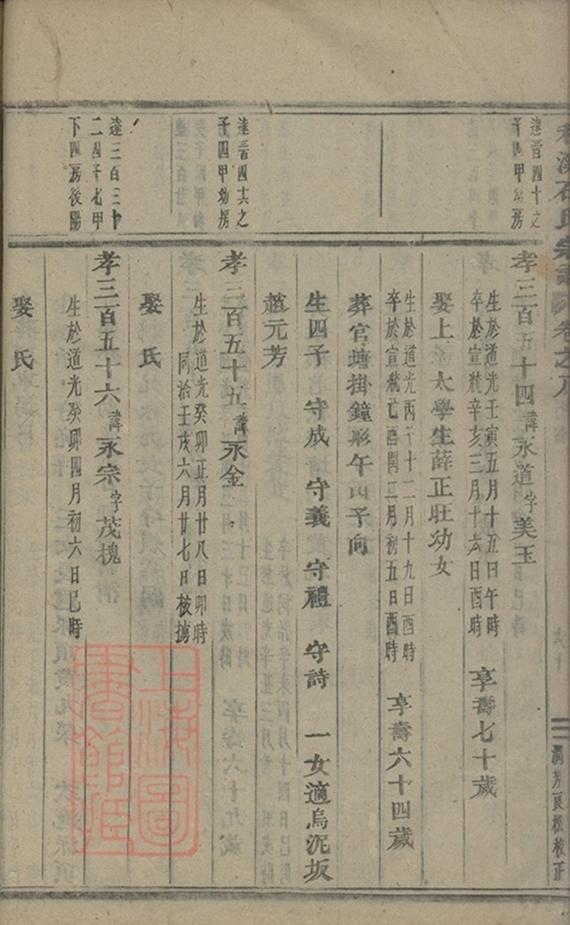 石氏宗譜 卷之八
潤芳良榡校正
達晉四十之
子四甲幼房
孝三百五十四諱永道字美玉
生於道光壬寅五月十五日午時
卒於宣統辛亥三月十六日酉時
享壽七十歲
娶上 太學生薛正旺幼女
生於道光丙午十二月十九日酉時
卒於宣統亡酉閏二月初五日酉時
享壽六十四歲
葬官塘掛鐘形午山子向
生四子 守成 守義 守禮 守詩 一女適烏泥坂
趙元芳
達晉四共之
子四甲幼房
孝三百五十五諱永金
生於道光癸卯正月廿八日卯時
同治壬戌六月廿七日被擄
娶 氏
達三百三十
二四子七甲
下四房後陽
孝三百五十六諱永宗字茂槐
生於道光癸卯四月初六日巳時
娶 氏
上海圖書館